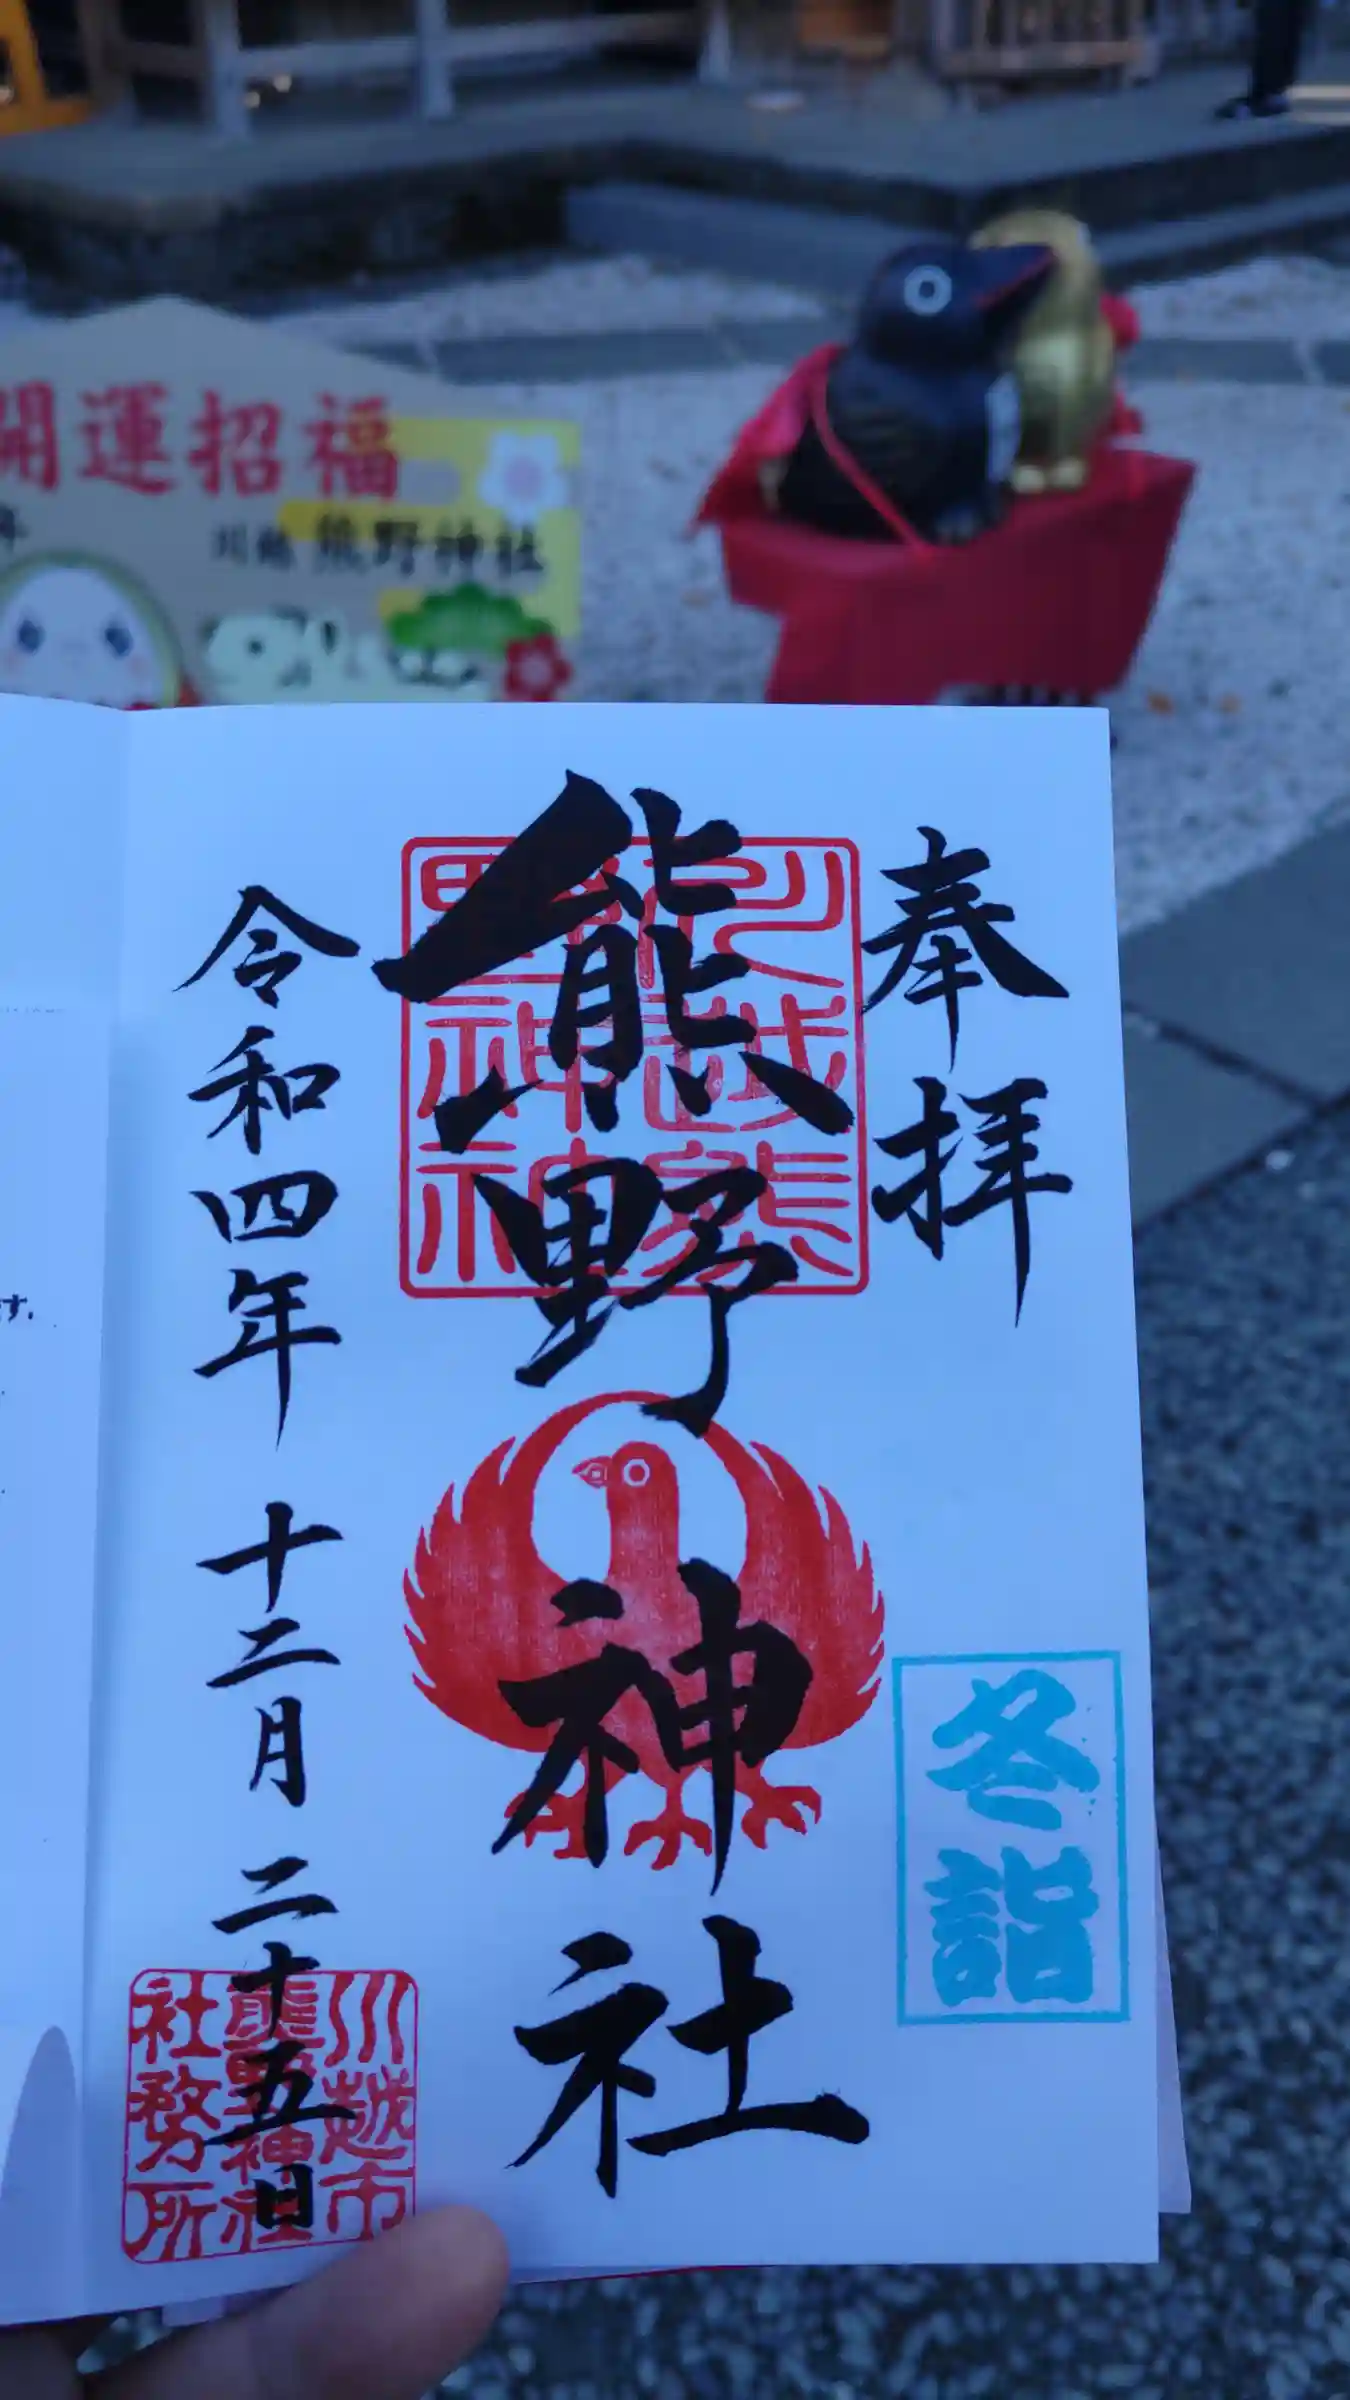 開運招福
川越 熊野神社
奉拝
冬詣
熊野神社
川越熊野神社
令和四年 十二月 二十五日
川越市
熊野神社
社務所
す。